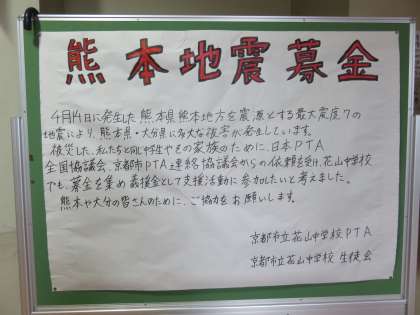 熊本地震募金
4月14日に発生した熊本県熊本地方を震源とする最大震度7の
地震により、熊本県・大分県に甚大な被害が発生しています。
被災した、私たちと同じ中学生やその家族のために、日本PTA
全国協議会、京都市PTA連絡協議会からの依頼を受け、花山中学校
でも、募金を集め義援金として支援活動に参加したいと考えました。
熊本や大分の皆さんのために、ご協力をお願いします。
京都市立花山中学校PTA
京都市立花山中学校 生徒会